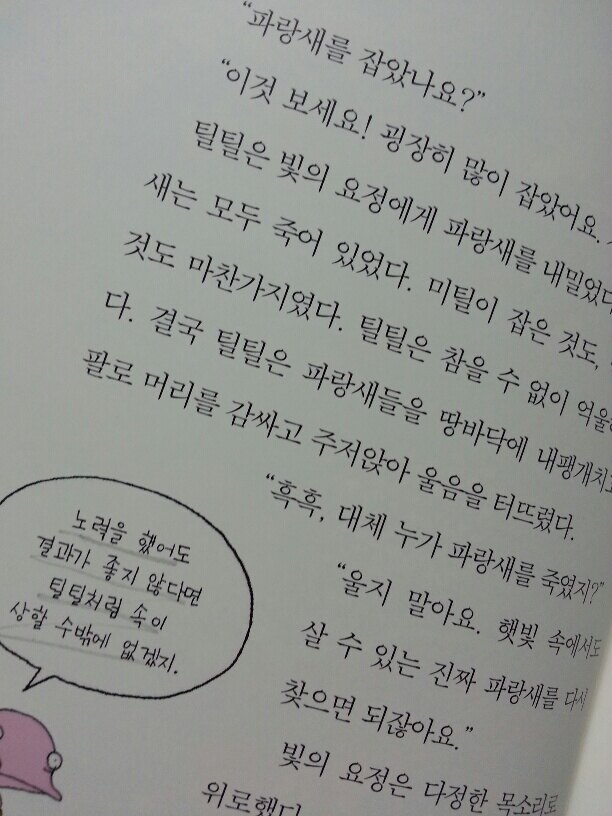 “파랑새를 잡았나요?”
“이것 보세요! 굉장히 많이 잡았어요.
틸틸은 빛의 요정에게 파랑새를 내밀었다
새는 모두 죽어 있었다. 미틸이 잡은 것도,
것도 마찬가지였다. 틸틸은 참을 수 없이
다. 결국 틸틸은 파랑새들을 땅바닥에 내팽개치고
팔로 머리를 감싸고 주저앉아 울음을 터뜨렸다.
“흑흑, 대체 누가 파랑새를 죽였지?”
“울지 말아요. 햇빛 속에서도
살 수 있는 진짜 파랑새를 다시
찾으면 되잖아요.”
빛의 요정은 다정한 목소리로
위로했다
노력을 했어도
결과가 좋지 않다면
틸틸처럼 속이
상할 수밖에 없겠지.